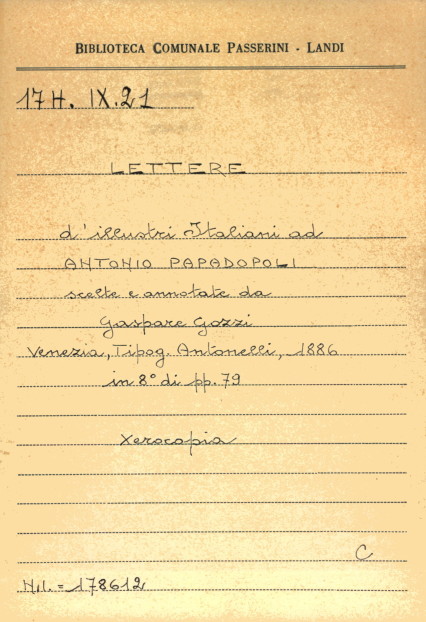 BIBLIOTECA COMUNALE PASSERINI - LANDI
17H. IX.21
LETTERE
d'illustri Italiani ad
ANTONIO PAPADOPOLI
scelte e annotate da
Gaspare Gozzi
Venezia, Tipog. Antonelli, 1886
in 8° di pp. 79
Xerocopia
C
N.i. = 178612